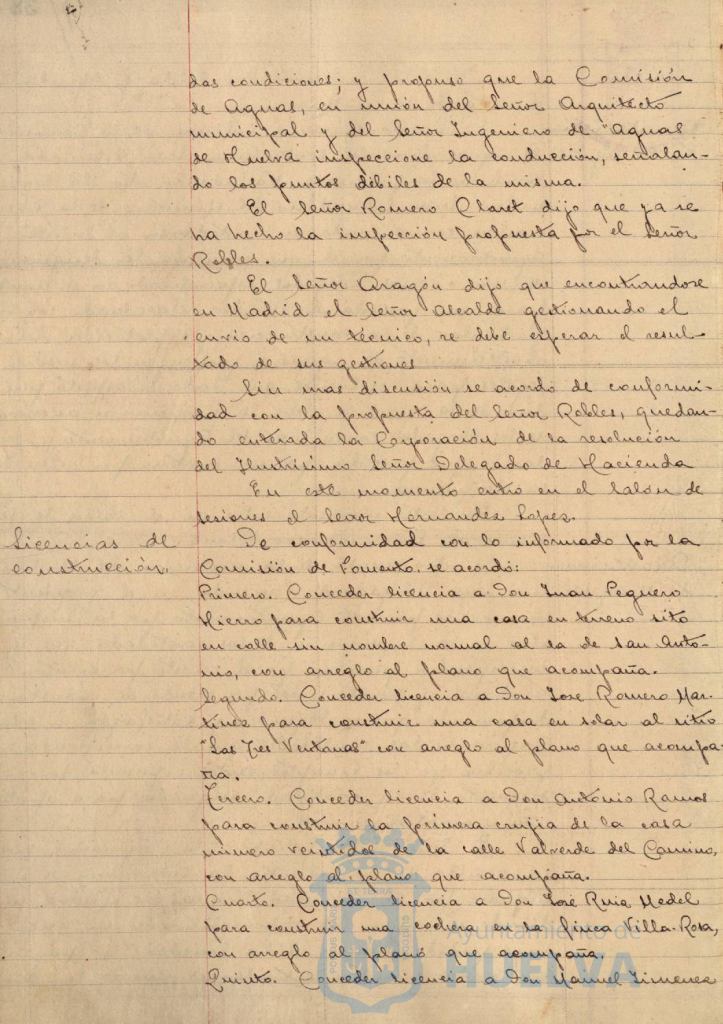 das condiciones; y propuso que la Comisión
de Aguas, en unión del Señor Arquitecto
municipal y del Señor Ingeniero de "Aguas
de Huelva inspeccione la conducción, señalan-
do los puntos débiles de la misma.
El Señor Romero Claret dijo que ya se
ha hecho la inspección propuesta por el Señor
Robles.
El Señor Aragón dijo que encontrandose
en Madrid el Señor Alcalde gestionando el
envio de un técnico, se debe esperar el resul-
tado de sus gestiones
Sin mas discusión se acordo de conformi-
dad con la propuesta del Señor Robles, quedan-
do enterada la Corporación de la resolución
del Ilustrisimo Señor Delegado de Hacienda
En este momento entro en el Salón de
sesiones el Señor Hernandez Lopez.
Licencias de
construcción.
De conformidad con lo informado por la
Comisión de Fomento, se acordó:
Primero. Conceder licencia a Don Juan Peguero
Hierro para construir una casa en terreno sito
en calle sin nombre normal al la de San Anto-
nio, con arreglo al plano que acompaña.
Segundo. Conceder licencia a Don José Romero Mar-
tinez para construir una casa en solar al sitio
"Las Tres Ventanas" con arreglo al plano que acompa-
ña.
Tercero. Conceder licencia a Don Antonio Ramos
para construir la primera crujia de la casa
número veintidos de la calle Valverde del Camino,
con arreglo al plano que acompaña.
Cuarto. Conceder licencia a Don José Ruiz Medel
para construir una cochera en la finca Villa-Rosa,
con arreglo al plano que acompaña.
Quinto. Conceder licencia a Don Manuel Jimenez
Ayuntamiento de
HUELVA